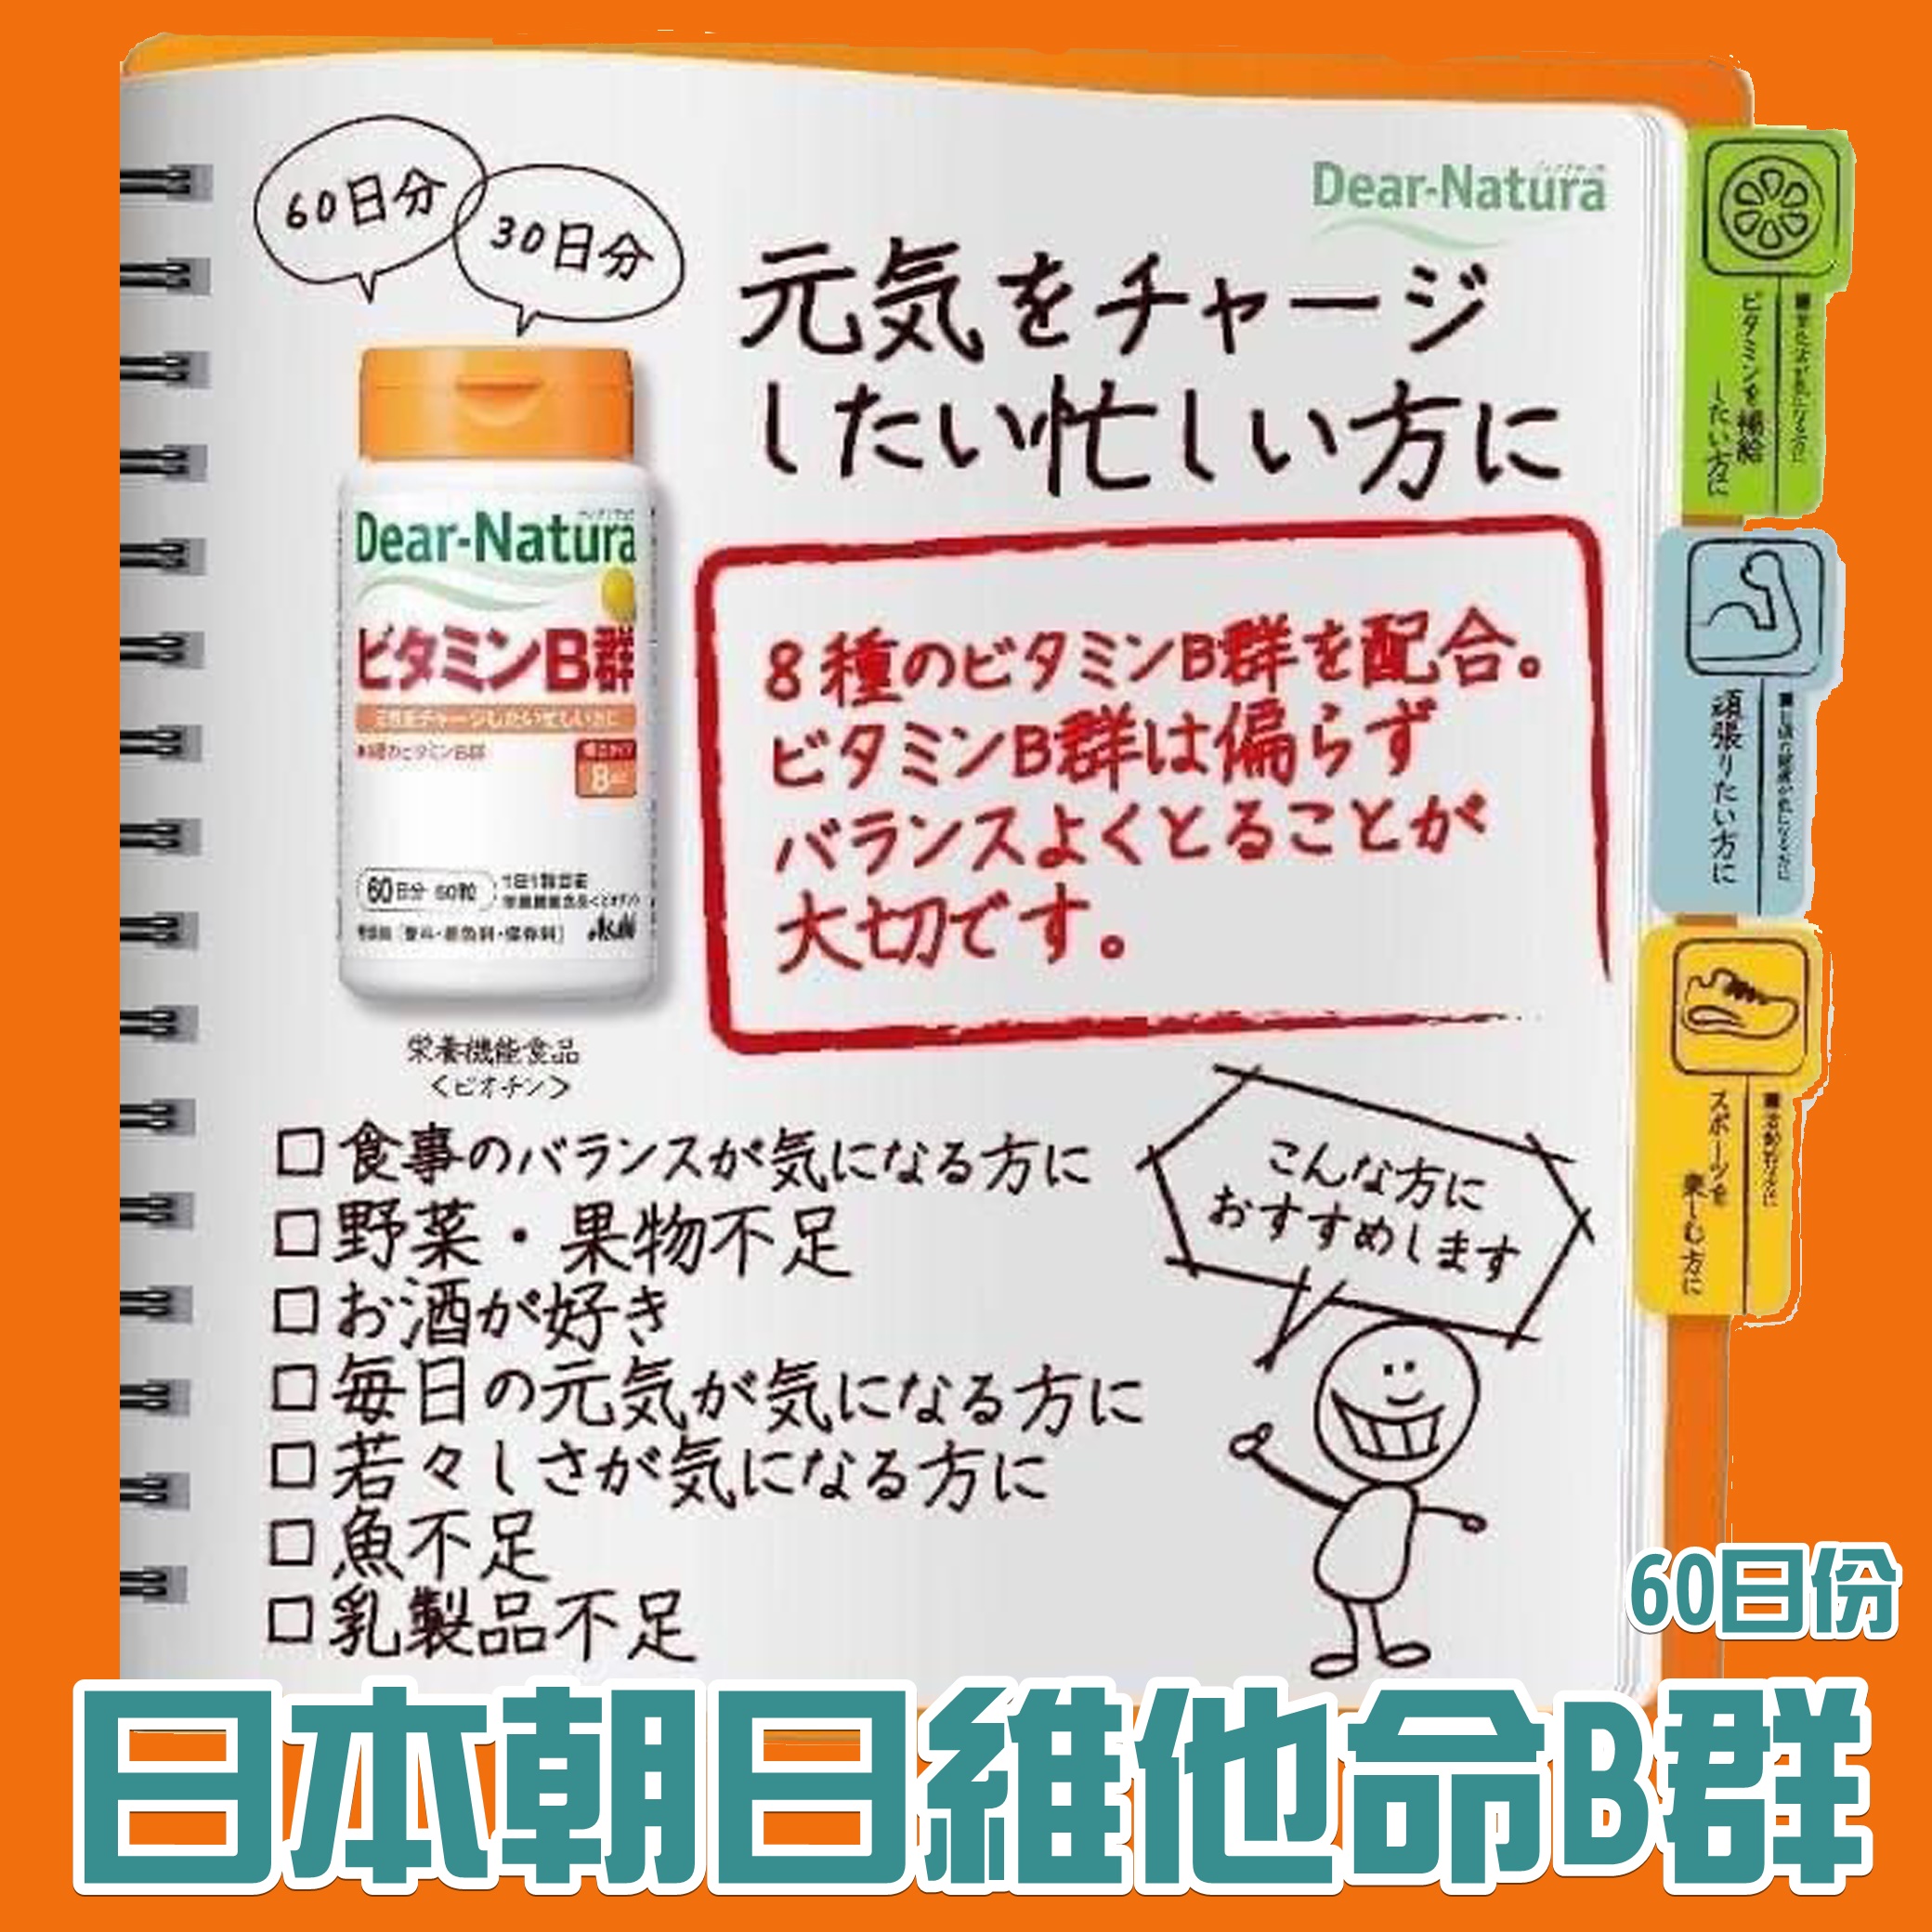 60日分
30日分
Dear-Natura
元気をチャージ
したい忙しい方に
Dear-Natura
ビタミンB群
元気をチャージしたい忙しい方に
8種のビタミンB群
60日分 60粒
Asahi
8種のビタミンB群を配合。
ビタミンB群は偏らず
バランスよくとることが
大切です。
栄養機能食品
<ビオチン>
□食事のバランスが気になる方に
□野菜・果物不足
□お酒が好き
□毎日の元気が気になる方に
□若々しさが気になる方に
□魚不足
□乳製品不足
こんな方に
おすすめします
ビタミンを補給
したい方に
頑張りたい方に
スポーツを
楽しむ方に
60日份
日本朝日維他命B群